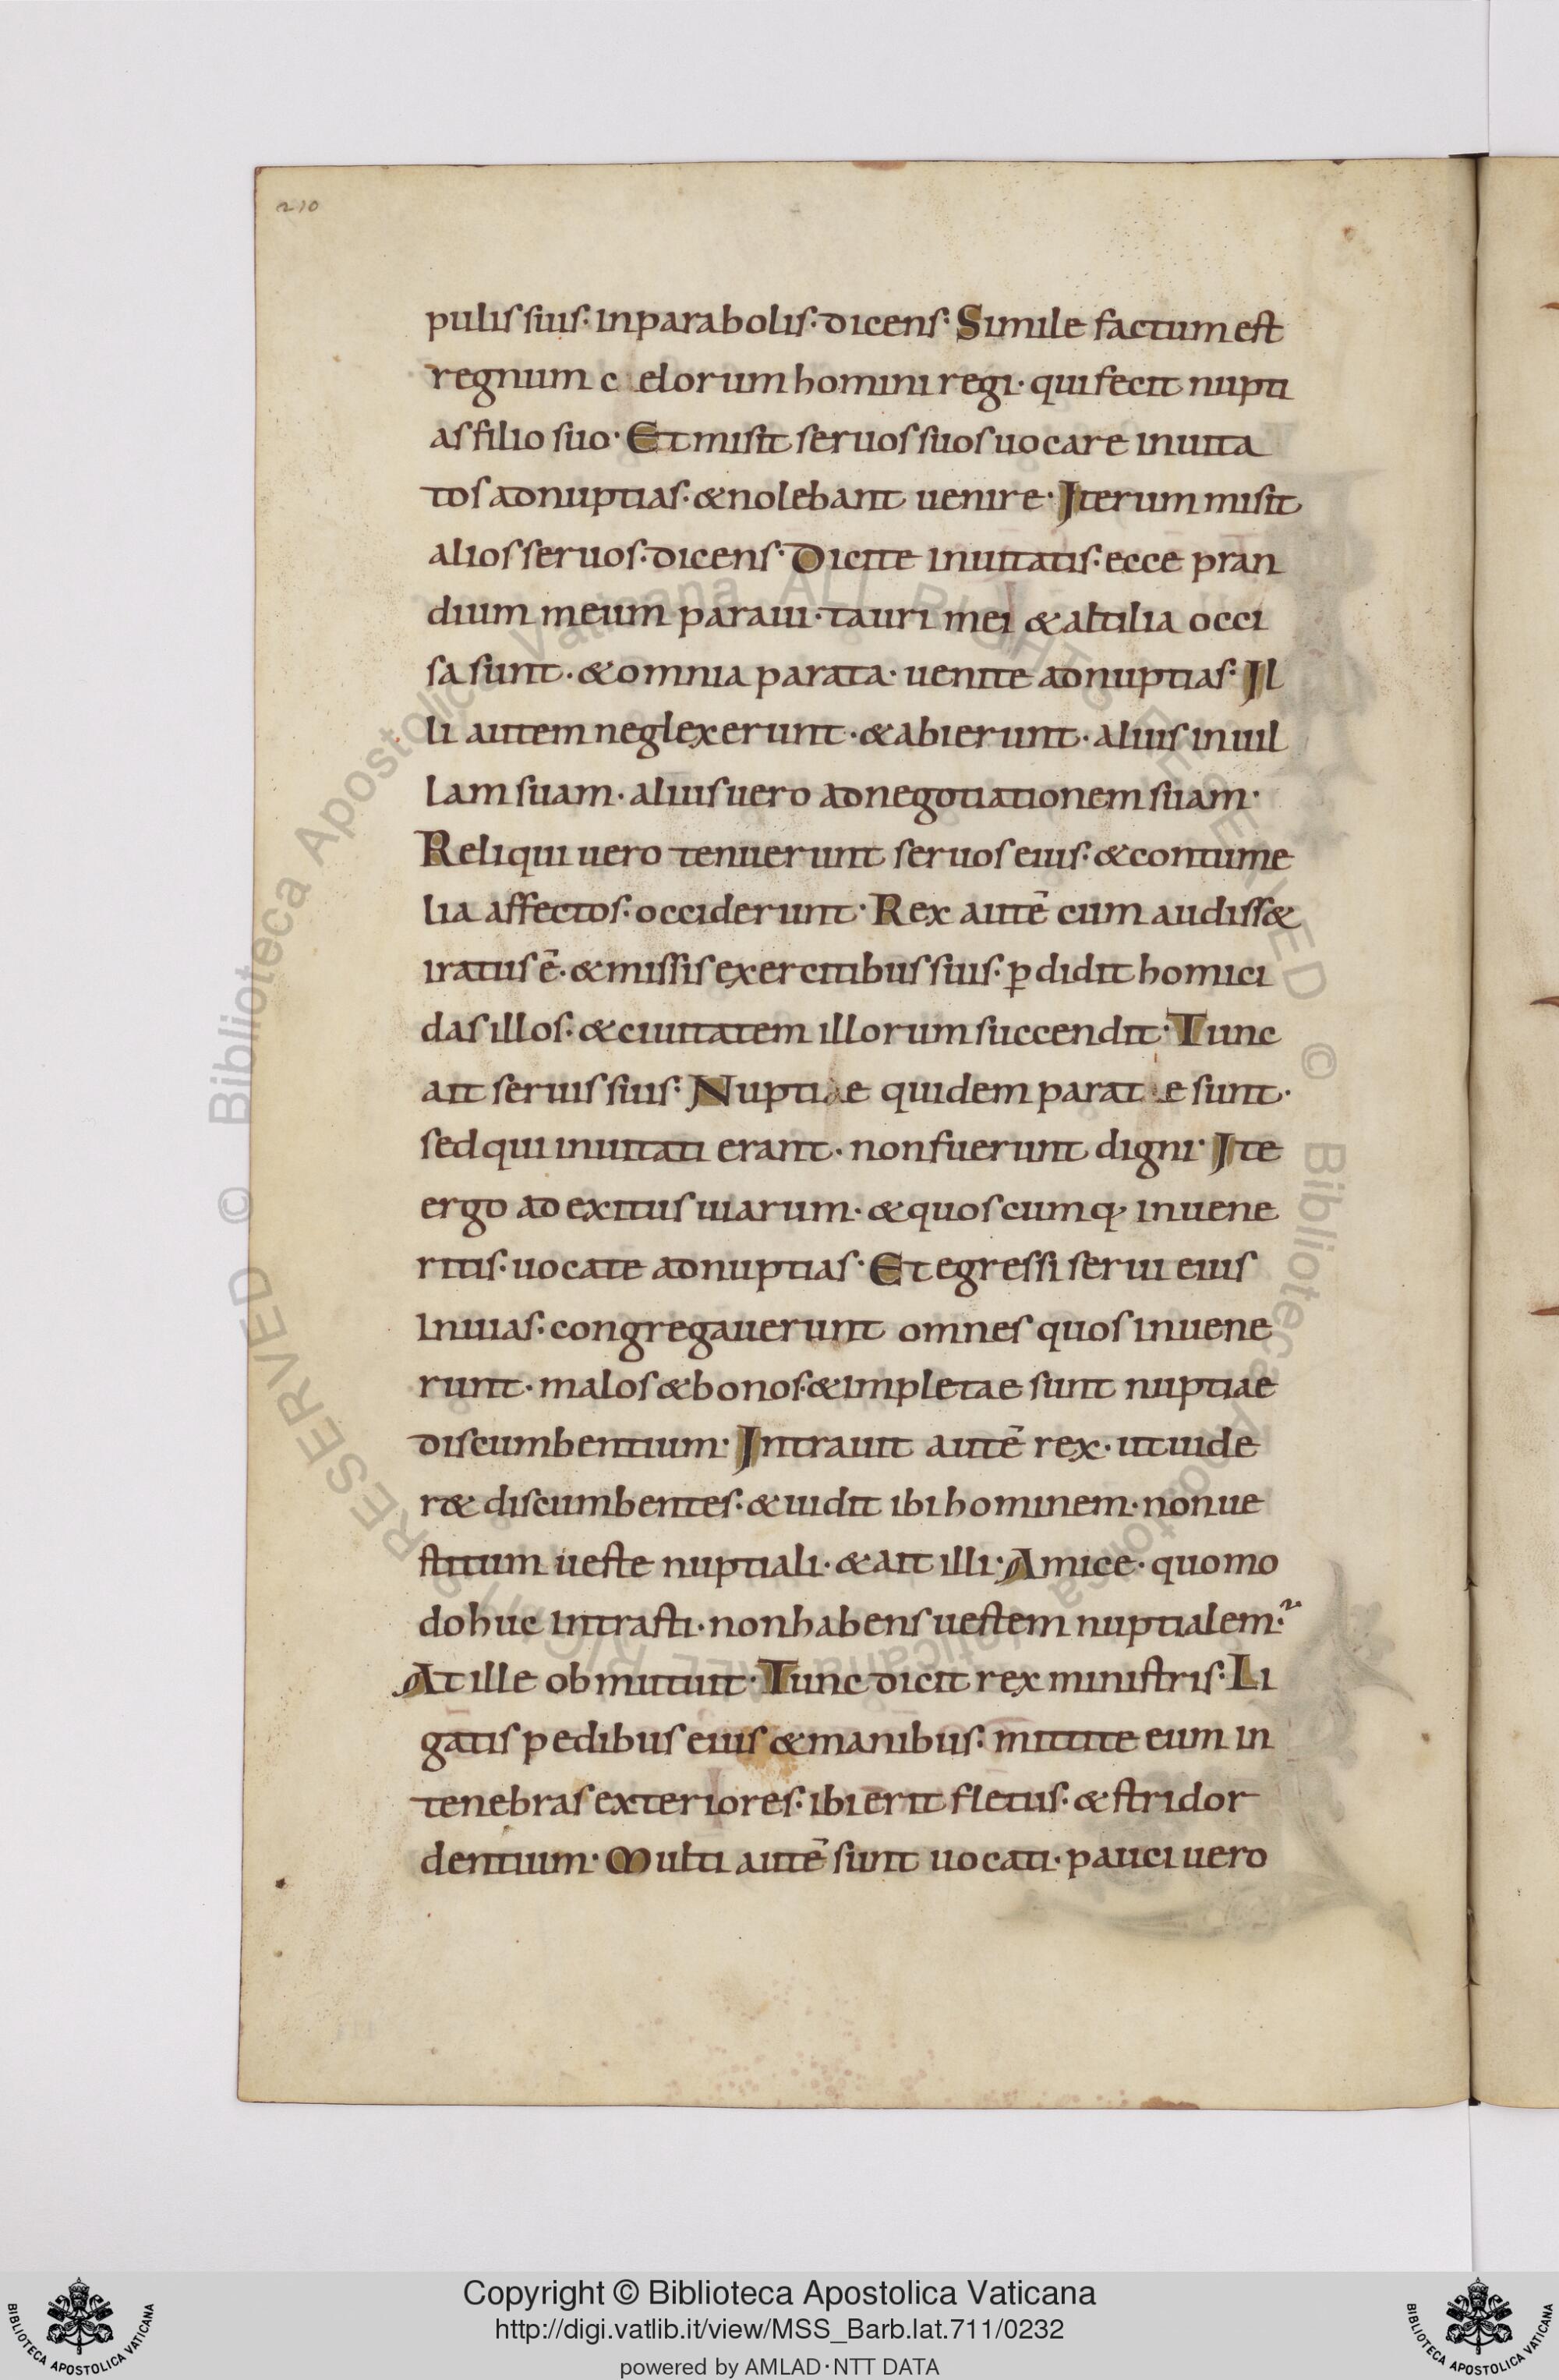 210
pulis suis· in parabolis· dicens· Simile factum est
regnum c elorum homini regi· qui fecit nupti
as filio suo· Et misit seruos suos uocare inuita
tos ad nuptias· & nolebant uenire· Iterum misit
alios seruos· dicens· Dicite inuitatis· ecce pran
dium meum paraui· tauri mei & altilia occi
sa sunt· & omnia parata· uenite ad nuptias· Il
li autem neglexerunt· & abierunt· alius in uil
lam suam· alius uero ad negotiationem suam·
Reliqui uero tenuerunt seruos eius· & contume
lia affectos· occiderunt· Rex autē cum audiss&
iratus ē· & missis exercitibus suis· ꝑdidit homici
das illos· & ciuitatem illorum succendit· Tunc
ait seruis suis· Nuptiae quidem parat e sunt·
sed qui inuitati erant· non fuerunt digni· Ite
ergo ad exitus uiarum· & quoscumq· inuene
ritis· uocate ad nuptias· Et egressi serui eius
in uias· congregauerunt omnes quos inuene
runt· malos & bonos· & impletae sunt nuptiae
discumbentium· Intrauit autē rex· ut uide
r& discumbentes· & uidit ibi hominem· non ue
stitum ueste nuptiali· & ait illi· Amice· quomo
do huc intrasti· non habens uestem nuptialem?
At ille obmutuit· Tunc dicit rex ministris· Li
gatis pedibus eius & manibus· mittite eum in
tenebras exteriores· ibi erit fletus· & stridor
dentium· Multi autē sunt uocati· pauci uero
© Biblioteca Apostolica Vaticana ALL RIGHTS RESERVED © Biblioteca Apostolica Vaticana ALL RIGHTS RESERVED
Copyright © Biblioteca Apostolica Vaticana
http://digi.vatlib.it/view/MSS_Barb.lat.711/0232
powered by AMLAD·NTT DATA
BIBLIOTECA APOSTOLICA VATICANA
BIBLIOTECA APOSTOLICA VATICANA